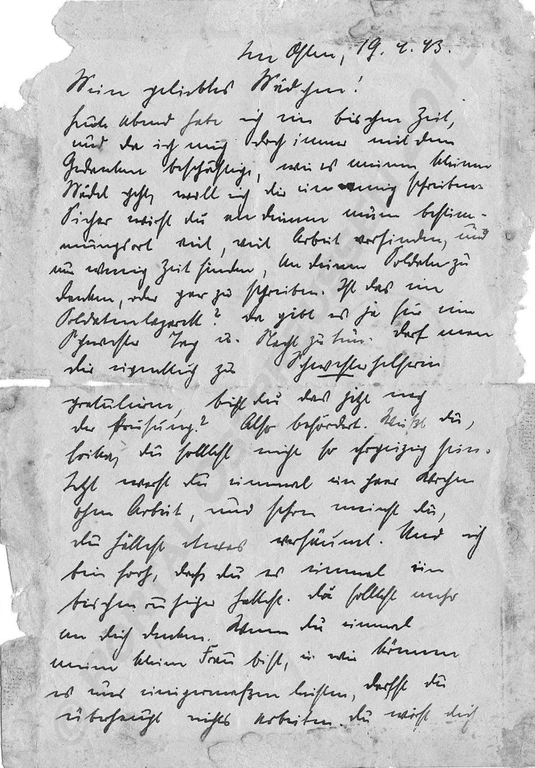 Im Osten, 19.4.43.
Mein geliebtes Mädchen!
Heute Abend habe ich ein bischen Zeit,
und da ich mich doch immer mit dem
Gedanken beschäftige, wie es meinem kleinen
Mädel geht, will ich dir ein wenig schreiben.
Sicher wirst du an deinem neuen Bestim-
mungsort viel, viel Arbeit vorfinden, und
nur wenig Zeit finden, an deinen Soldaten zu
denken, oder gar zu schreiben. Ist das ein
Soldatenlazarett? Da gibt es ja für eine
Schwester Tag u. Nacht zu tun. Darf man
dir eigentlich zu Schwesterhelferin
gratulieren, bist du das jetzt nach
der Prüfung? Also befördert. Weißt du,
du sollst nicht so ehrgeizig sein.
Jetzt warst du einmal ein paar Wochen
ohne Arbeit, und schon meinst du,
du hättest etwas versäumt. Und ich
bin froh, dass du es einmal ein
bischen ruhiger hattest. Du sollst mehr
an dich denken. Wenn du einmal
meine kleine Frau bist, u. wir können
es uns einigermaßen leisten, darfst du
überhaupt nichts arbeiten. Du wirst dich